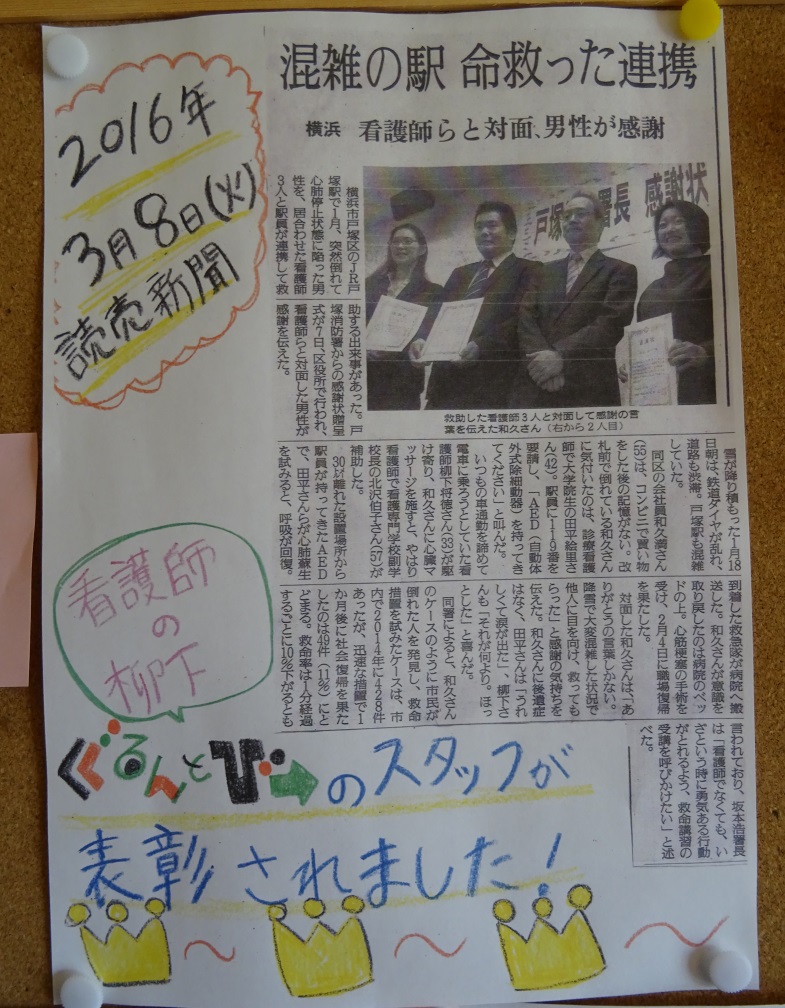 2016年
3月8日(火)
読売新聞
混雑の駅 命救った連携
横浜 看護師らと対面、男性が感謝
戸塚
署長 感謝状
横浜市戸塚区のJR戸
塚駅で1月、突然倒れて
心肺停止状態に陥った男
性を、居合わせた看護師
3人と駅員が連携して救
助する出来事があった。戸
塚消防署からの感謝状贈呈
式が7日、区役所で行われ、
看護師らと対面した男性が
感謝を伝えた。
救助した看護師3人と対面して感謝の言
葉を伝えた和久さん(右から2人目)
雪が降り積もった1月18
日朝は、鉄道ダイヤが乱れ、
道路も渋滞。戸塚駅も混雑
していた。
同区の会社員和久満さん
(55)は、コンビニで買い物
をした後の記憶がない。改
札前で倒れている和久さん
に気付いたのは、診療看護
師で大学院生の田平絵里さ
ん(42)。駅員に119番を
要請し、「AED(自動体
外式除細動器)を持ってき
てください」と叫んだ。
いつもの車通勤を諦めて
電車に乗ろうとしていた看
護師柳下将徳さん(33)が駆
け寄り、和久さんに心臓マ
ッサージを施すと、やはり
看護師で看護専門学校副学
校長の北沢伯子さん(57)が
補助した。
30㍍離れた設置場所から
駅員が持ってきたAED
で、田平さんらが心肺蘇生
を試みると、呼吸が回復。
到着した救急隊が病院へ搬
送した。和久さんが意識を
取り戻したのは病院のベッ
ドの上。心筋梗塞の手術を
受け、2月4日に職場復帰
を果たした。
対面した和久さんは、「あ
りがとうの言葉しかない。
降雪で大変混雑した状況で
他人に目を向け、救っても
らった」と感謝の気持ちを
伝えた。和久さんに後遺症
はなく、田平さんは「うれ
しくて涙が出た」、柳下さ
んも「それが何より。ほっ
とした」と喜んだ。
同署によると、和久さん
のケースのように市民が
倒れた人を発見し、救命
措置を試みたケースは、市
内で2014年に428件
あったが、迅速な措置で1
か月後に社会復帰を果た
したのは49件(11%)にと
どまる。救命率は1分経過
するごとに10%下がるとも
言われており、坂本浩署長
は「看護師でなくても、い
ざという時に勇気ある行動
がとれるよう、救命講習の
受講を呼びかけたい」と述
べた。
看護師
の
柳下
ぐるんとびーのスタッフが
表彰されました!